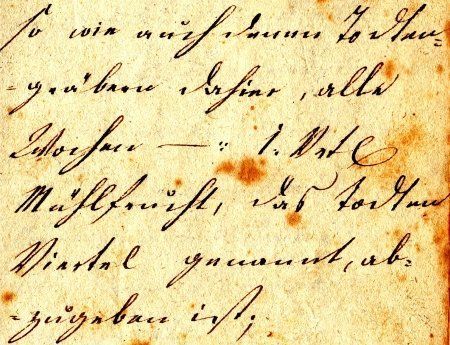 so wie auch denen Todten-
-gräbern dahier, alle
Wochen — " 1. Vrtl
Mühlfrucht, das Todten
Viertel genannt, ab-
-zugeben ist;